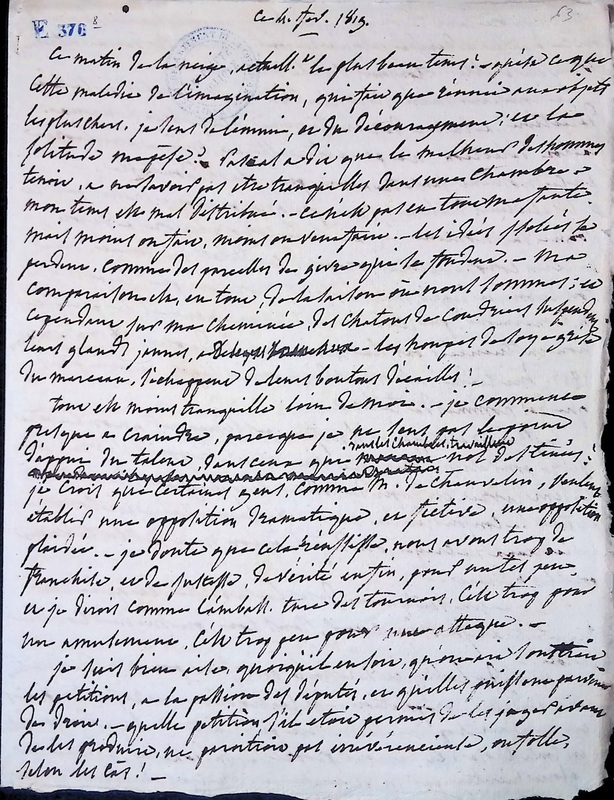 VE 376 8
ce 4. fev. 1819.
63
ce matin de la neige, actuell.t le plus beau tems! - qu'est-ce que
cette maladie de l'imagination, qui fait que réunie aux objets
les plus chers, je sens de l'ennui, et du découragement; et la
solitude me pèse? Pascal a dit que le malheur des hommes
tenoit, a ne savoir pas etre tranquilles dans une chambre. -
mon tems est mal distribué. - ce n'est pas en tout ma faute
mais moins on fait, moins on veut faire. - les idées isolées se
perdent, comme des parcelles de givre qui se fondent. - ma
comparaison est, en tout, de la saison où nous sommes; et
cependant sur ma cheminée, des chatons de coudriers suspendent
leurs glands jaunes, - les houpes de soye grise
du marceau, s'échappent de leurs boutons d'écailles! -
tout est moins tranquille loin de moi. - je commence
presque a craindre, parceque je ne sens pas le point
d'appui du talent, dans ceux que nos destinées!
dans les chambres, travaillent
je crois que certaines gens, comme M. de Chauvelin, veulent
établir une opposition dramatique, et fictive, une opposition
plaidée. - je doute que cela réussisse, nous avons trop de
franchise, et de justesse, de vérité enfin, pour un tel jeu,
et je dirois comme l'ambass. turc des tournois, c'est trop pour
un amusement, c'est trop peu pour une attaque. -
je suis bien aise, quoiqu'il en soit, qu'on ait
les pétitions, a la passion des députés, et qu'elles
de droit. - quelle pétition s'il etoit permis de les juger avant
de les produire, ne paroitroit pas irrévérencieuse, ou folle,
selon les cas! -